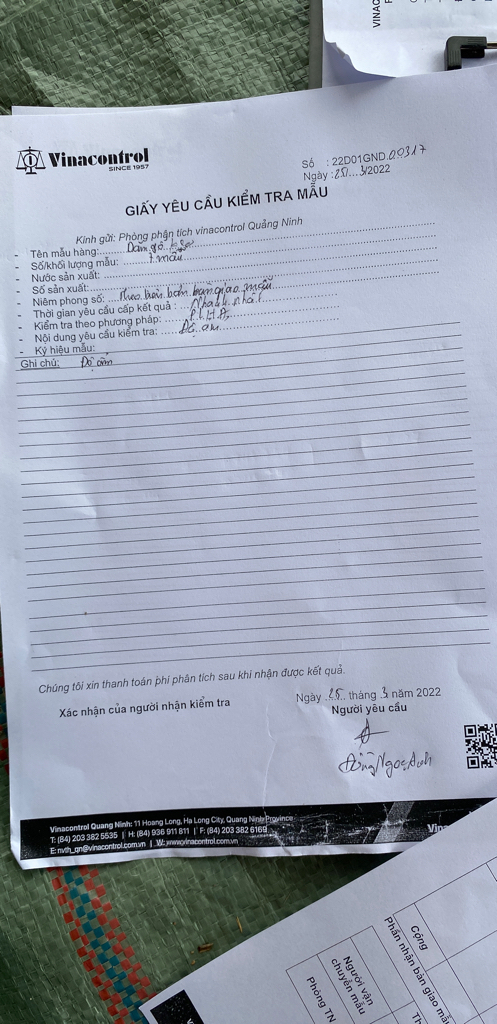 VINAC
Vinacontrol
SINCE 1957
Số : 22D01GND.00317
Ngày : 25/...3/2022
GIẤY YÊU CẦU KIỂM TRA MẪU
Kính gửi: Phòng phân tích vinacontrol Quảng Ninh
- Tên mẫu hàng: Dăm gỗ
- Số/khối lượng mẫu: 1 mẫu
- Nước sản xuất:
- Số sản xuất:
- Niêm phong số: Theo biên bản bàn giao mẫu
- Thời gian yêu cầu cấp kết quả : Nhanh nhất
- Kiểm tra theo phương pháp:
- Nội dung yêu cầu kiểm tra: Độ ẩm
- Ký hiệu mẫu:
Ghi chú: Độ ẩm
Chúng tôi xin thanh toán phí phân tích sau khi nhận được kết quả.
Ngày .25.. tháng 3 năm 2022
Xác nhận của người nhận kiểm tra
Người yêu cầu
Đồng Ngọc Anh
Vinacontrol Quảng Ninh: 11 Hoang Long, Ha Long City, Quang Ninh Province
T: (84) 203 382 5535 | H: (84) 936 911 811 | F: (84) 203 382 6169
E: nvth_qn@vinacontrol.com.vn | W: www.vinacontrol.com.vn
Vin
Cộng
Phần nhận bàn giao mẫ
Người vận chuyển mẫu
Th
Phòng TN